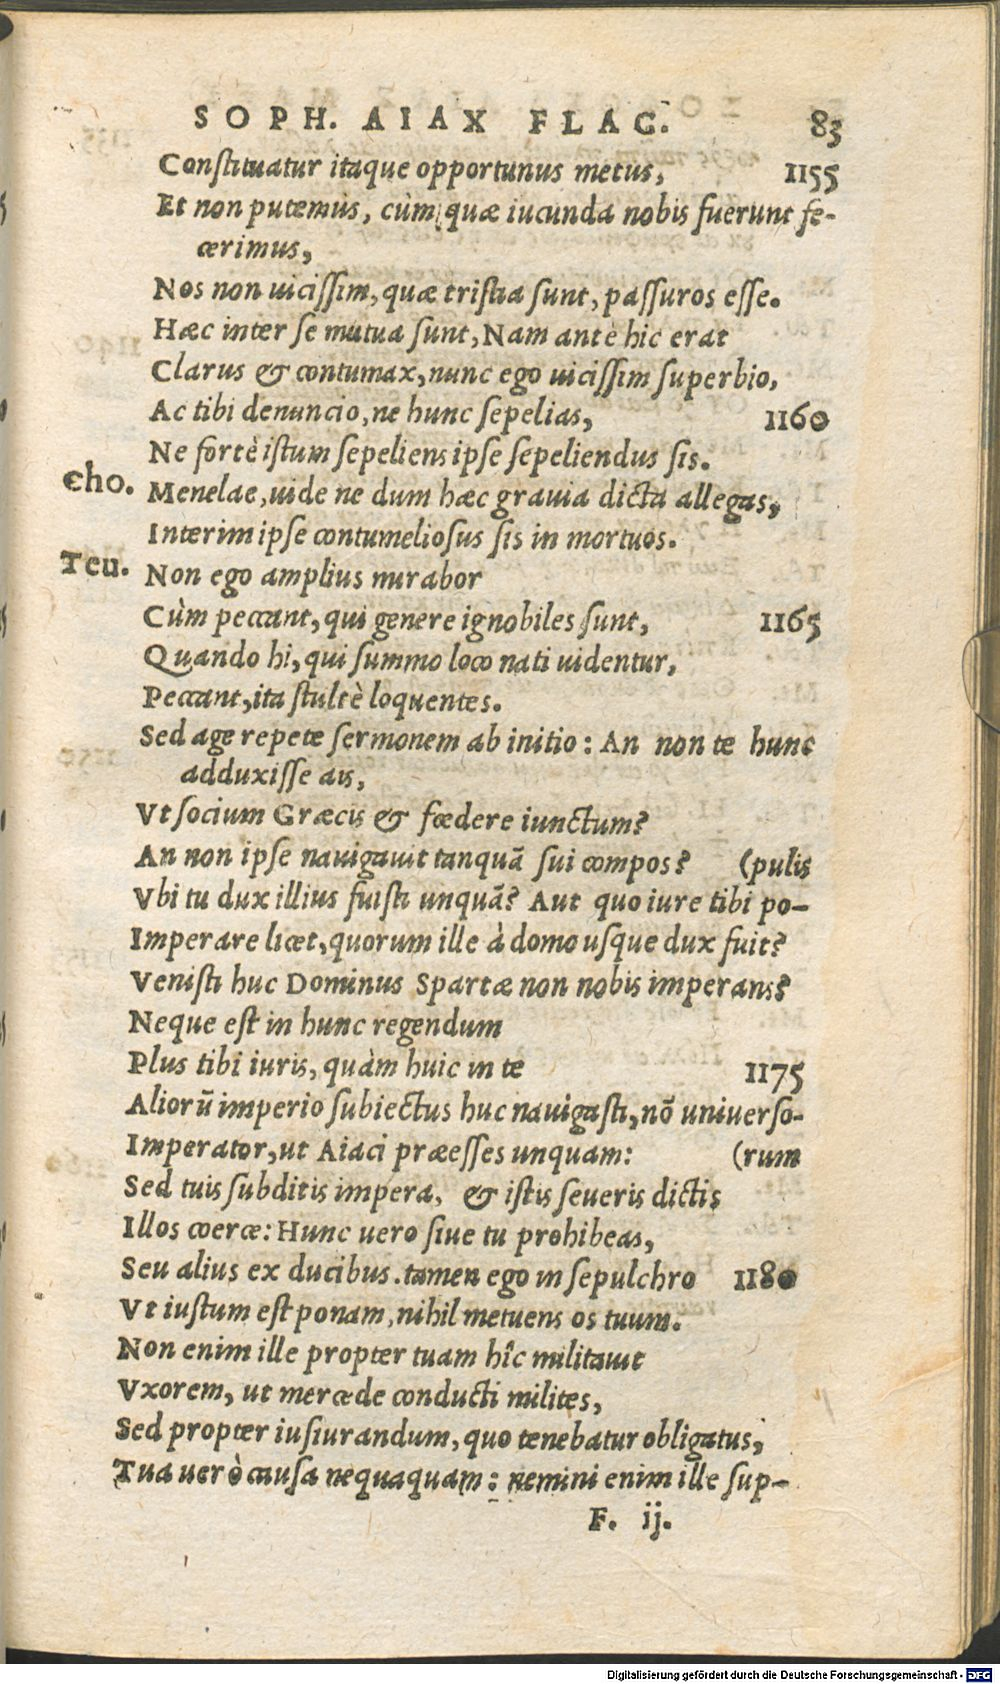 SOPH. AIAX FLAG. 83
Conſtituatur itaque opportunus metus, 1155
Et non putemus, cùm quæ iucunda nobis fuerunt fe-
cerimus,
Nos non uiciſſim, quæ triſtia ſunt, paſſuros eſſe.
Hæc inter ſe mutua ſunt, Nam ante hic erat
Clarus & contumax, nunc ego uiciſſim ſuperbio,
Ac tibi denuncio, ne hunc ſepelias, 1160
Ne fortè iſtum ſepeliens ipſe ſepeliendus ſis.
Cho. Menelae, uide ne dum hæc grauia dicta allegas,
Interim ipſe contumelioſus ſis in mortuos.
Teu. Non ego amplius mirabor
Cùm peccant, qui genere ignobiles ſunt, 1165
Quando hi, qui ſummo loco nati uidentur,
Peccant, ita ſtultè loquentes.
Sed age repete ſermonem ab initio: An non te hunc
adduxiſſe ais,
Vt ſocium Græcis & fœdere iunctum?
An non ipſe nauigauit tanquã ſui compos? (pulis
Vbi tu dux illius fuiſti unquã? Aut quo iure tibi po-
Imperare licet, quorum ille à domo uſque dux fuit?
Veniſti huc Dominus Spartæ non nobis imperans?
Neque eſt in hunc regendum
Plus tibi iuris, quàm huic in te 1175
Aliorũ imperio ſubiectus huc nauigaſti, nõ uniuerſo-
Imperator, ut Aiaci præeſſes unquam: (rum
Sed tuis ſubditis impera, & iſtis ſeueris dictis
Illos coerce: Hunc uero ſiue tu prohibeas,
Seu alius ex ducibus. tamen ego in ſepulchro 1180
Vt iuſtum eſt ponam, nihil metuens os tuum.
Non enim ille propter tuam hîc militauit
Vxorem, ut mercede conducti milites,
Sed propter iuſiurandum, quo tenebatur obligatus,
Tua uerò cauſa nequaquam: nemini enim ille ſup-
F. ij.
Digitalisierung gefördert durch die Deutsche Forschungsgemeinschaft - DFG